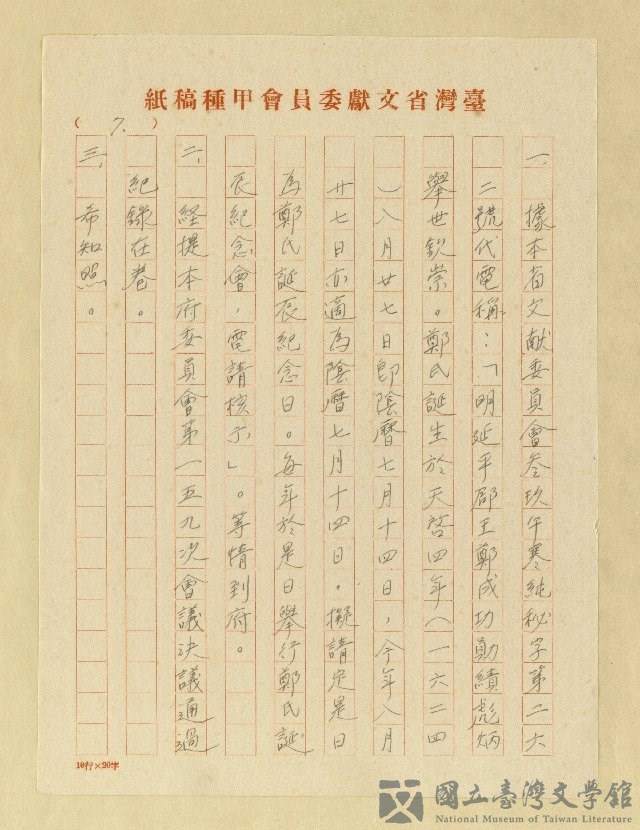 臺灣省文獻委員會甲種稿紙
(7.)
一、據本省文献委員會叁玖午寒純秘字第二六
二號代電稱：「明延平郡王鄭成功勛績彪炳
舉世欽崇。鄭氏誕生於天啓四年（一六二四
）八月廿七日即陰曆七月十四日，今年八月
廿七日亦適為陰曆七月十四日。擬請定是日
為鄭氏誕辰紀念日。每年於是日舉行鄭氏誕
辰紀念會，電請核示」。等情到府。
二、経提本府委員會第一五九次會議決議通過
紀錄在卷。
三、希知照。
10行×20字
國立臺灣文學館
National Museum of Taiwan Literature